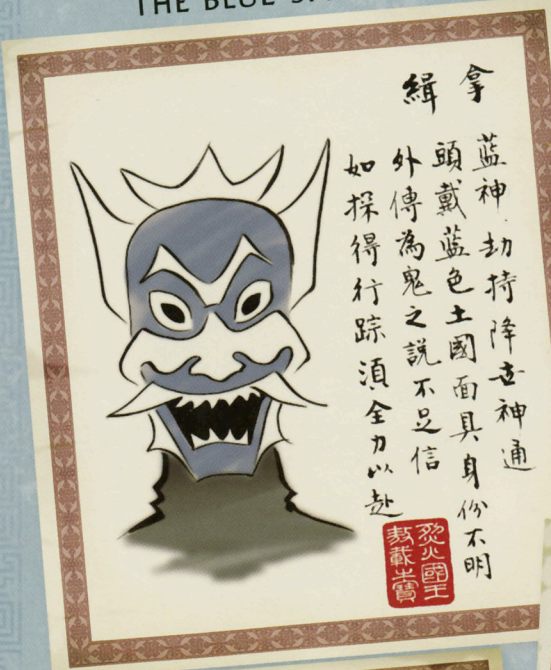 THE BLUE S
緝拿
蓝神劫持降世神通
頭戴蓝色土國面具身份不明
外傳為鬼之説不足信
如探得行踪須全力以赴
烈火國王
敖載之寶